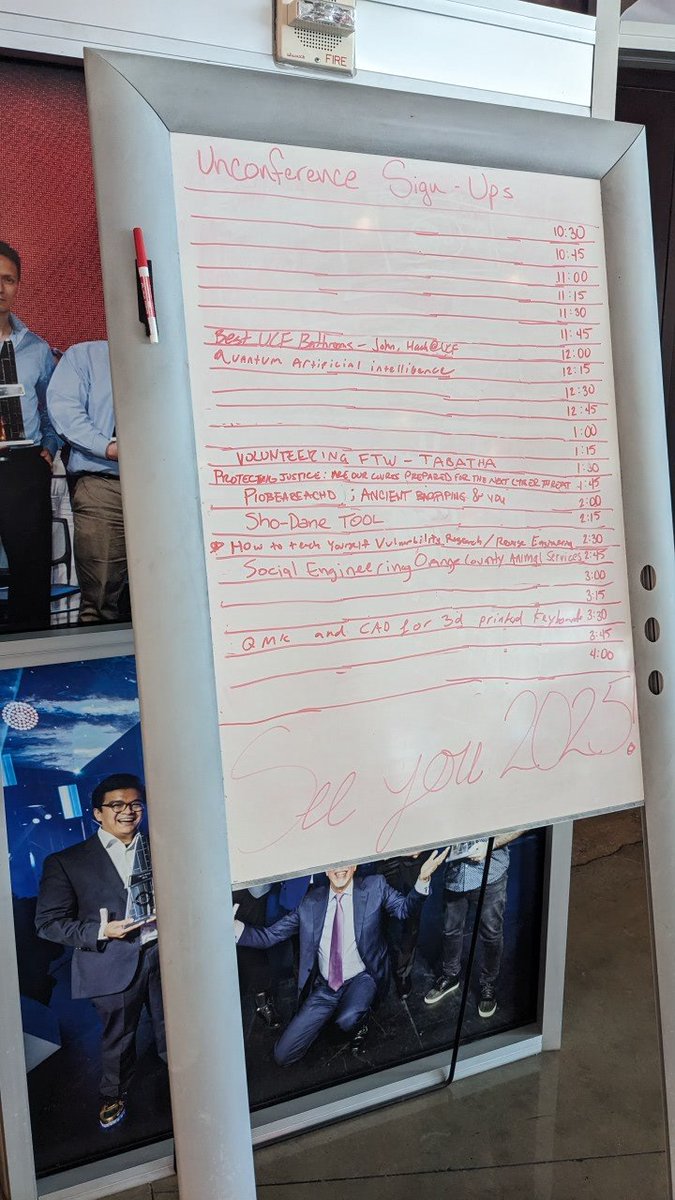 FIRE
Unconference Sign-Ups
10:30
10:45
11:00
11:15
11:30
11:45
Best UCF Bathrooms - John, Hack@UCF 12:00
Quantum Artificial intelligence 12:15
12:30
12:45
1:00
1:15
VOLUNTEERING FTW - TABATHA 1:30
PROTECTING JUSTICE: ARE OUR COURTS PREPARED FOR THE NEXT CYBER THREAT 1:45
PIOBEAREACHD ; ANCIENT BAGPIPING & YOU 2:00
Sho-Dane TOOL 2:15
How to teach Yourself Vulnerability Research/Reverse Engineering 2:30
Social Engineering Orange County Animal Services 2:45
3:00
3:15
QMK and CAD for 3d printed Keyboards 3:30
3:45
4:00
See you 2025!